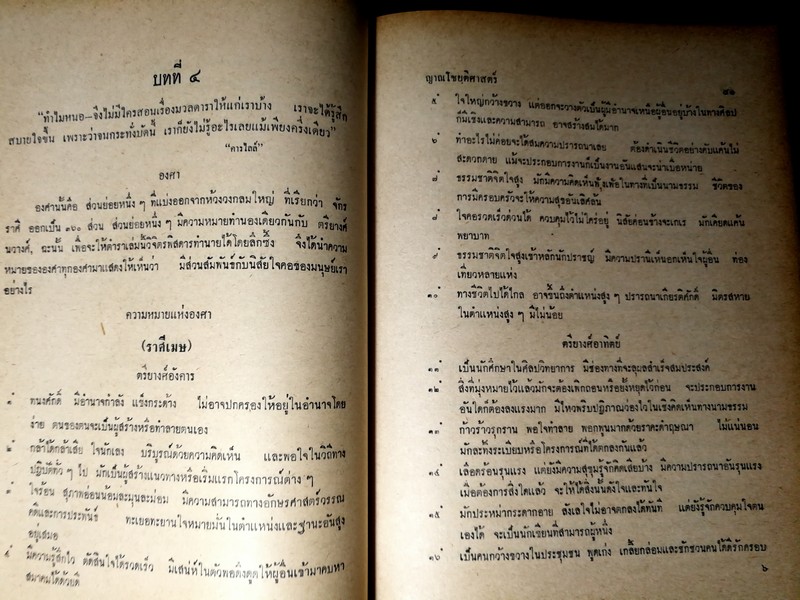 บทที่ ๔
“ทำไมหนอ—จึงไม่มีใครสอนเรื่องมวลดาราให้แก่เราบ้าง เราจะได้รู้สึก
สบายใจขึ้น เพราะว่าจนกระทั่งบัดนี้ เราก็ยังไม่รู้อะไรเลยแม้เพียงครึ่งเดียว”
“คารไลล์”
องศา
องศานั้นคือ ส่วนย่อยหนึ่ง ๆ ที่แบ่งออกจากห้วงวงกลมใหญ่ ที่เรียกว่า จักร
ราศี ออกเป็น ๓๖๐ ส่วน ส่วนย่อยหนึ่ง ๆ มีความหมายทำนองเดียวกันกับ ตรียางค์
นวางค์, ฉะนั้น เพื่อจะให้ตำราเล่มนี้วิจิตรพิสดารทำนายได้โดยลึกซึ้ง จึงได้นำความ
หมายขององศาทุกองศามาแสดงให้เห็นว่า มีส่วนสัมพันธ์กับนิสัยใจคอของมนุษย์เรา
อย่างไร
ความหมายแห่งองศา
(ราศีเมษ)
ตรียางศ์อังคาร
๑ ทนงศักดิ์ มีอำนาจกำลัง แข็งกระด้าง ไม่อาจปกครองให้อยู่ในอำนาจโดย
ง่าย ตนของตนจะเป็นผู้สร้างหรือทำลายตนเอง
๒ กล้าได้กล้าเสีย ใจนักเลง บริบูรณ์ด้วยความคิดเห็น และพอใจในวิถีทาง
ปฏิบัติทั่ว ๆ ไป มักเป็นผู้สร้างแนวทางหรือเริ่มแรกโครงการต่าง ๆ
๓ ใจร้อน สุภาพอ่อนน้อมละมุนละม่อม มีความสามารถทางอักษรศาสตร์วรรณ
คดีและการประพันธ์ ทะเยอทะยานใจหมายมั่นในตำแหน่งและฐานะอันสูง
อยู่เสมอ
๔ มีความรู้สึกไว ตัดสินใจได้รวดเร็ว มีเสน่ห์ในตัวพอดึงดูดให้ผู้อื่นเข้ามาคบหา
สมาคมได้ด้วยดี
ญาณโชยติศาสตร์
๔๑
๕ ใจใหญ่กว้างขวาง แต่ออกจะวางตัวเป็นผู้มีอำนาจเหนือผู้อื่นอยู่บ้างในทางศิลป
ก็มีเชิงและความสามารถ อาจสร้างสมได้มาก
๖ ทำอะไรไม่ค่อยจะได้สมความปรารถนาเลย ต้องดำเนินชีวิตอย่างคับแค้นไม่
สะดวกดาย แม้จะประกอบการงานก็เป็นงานอันแสนจะน่าเบื่อหน่าย
๗ ธรรมชาติจิตใจสูง มักมีความคิดเห็นฟุ้งเฟ้อในทางที่เป็นนามธรรม ชีวิตของ
การมีครอบครัวจะให้ความสุขอันเลิศล้น
๘ ใจคอรวดเร็วด่วนได้ ควบคุมไว้ไม่ใคร่อยู่ นิสัยค่อนข้างจะเกเร มักเคียดแค้น
พยาบาท
๙ ธรรมชาติจิตใจสูงเข้าหลักนักปราชญ์ มีความปรานีเห็นอกเห็นใจผู้อื่น ท่อง
เที่ยวหลายแห่ง
๑๐ ทางชีวิตไปได้ไกล อาจขึ้นถึงตำแหน่งสูง ๆ ปรารถนาเกียรติศักดิ์ มิตรสหาย
ในตำแหน่งสูง ๆ มีไม่น้อย
ตรียางศ์อาทิตย์
๑๑ เป็นนักศึกษาในศิลปวิทยาการ มีช่องทางที่จะลุผลสำเร็จสมประสงค์
๑๒ สิ่งที่มุ่งหมายไว้แล้วมักจะต้องเพิกถอนหรือยั้งหยุดไว้ก่อน จะประกอบการงาน
อันใดก็ต้องลงแรงมาก มีไหวพริบปฏิภาณว่องไวในเชิงคิดเห็นทางนามธรรม
๑๓ ก้าวร้าวรุกราน พอใจทำลาย พอกพูนมากด้วยราคะดำฤษณา ไม่แน่นอน
มักละทิ้งระเบียบหรือโครงการณ์ที่ได้ตกลงกันแล้ว
๑๔ เลือดร้อนรุนแรง แต่ยังมีความสุขุมรู้จักคิดเสียบ้าง มีความปรารถนาอันรุนแรง
เมื่อต้องการสิ่งใดแล้ว จะให้ได้สิ่งนั้นดังใจและทันใจ
๑๕ มักประหม่ากระดากอาย ลังเลใจไม่อาจตกลงได้ทันที แต่ยังรู้จักควบคุมใจตน
เองได้ จะเป็นนักเขียนที่สามารถผู้หนึ่ง
๑๖ เป็นคนกว้างขวางในประชุมชน พูดเก่ง เกลี้ยกล่อมและชักชวนคนได้ดีรักครอบ
๖